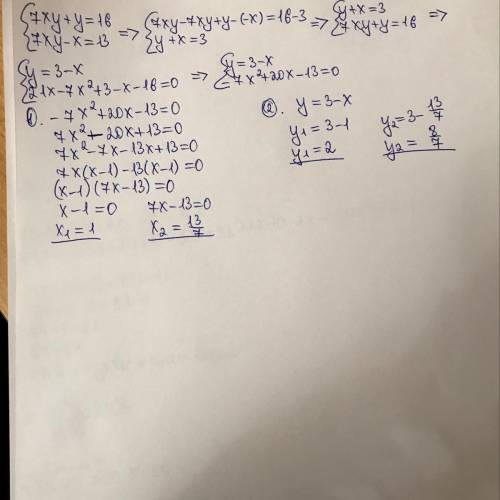 {7xy+y=16 {7xy-7xy+y-(-x)=16-3 {y+x=3
{7xy-x=13 => {y+x=3 => {7xy+y=16 =>
{y=3-x {y=3-x
{21x-7x²+3-x-16=0 => {-7x²+20x-13=0
①. -7x²+20x-13=0
7x²-20x+13=0
7x²-7x-13x+13=0
7x(x-1)-13(x-1)=0
(x-1)(7x-13)=0
x-1=0 7x-13=0
x₁=1 x₂=13/7
②. y=3-x
y₁=3-1 y₂=3-13/7
y₁=2 y₂=8/7